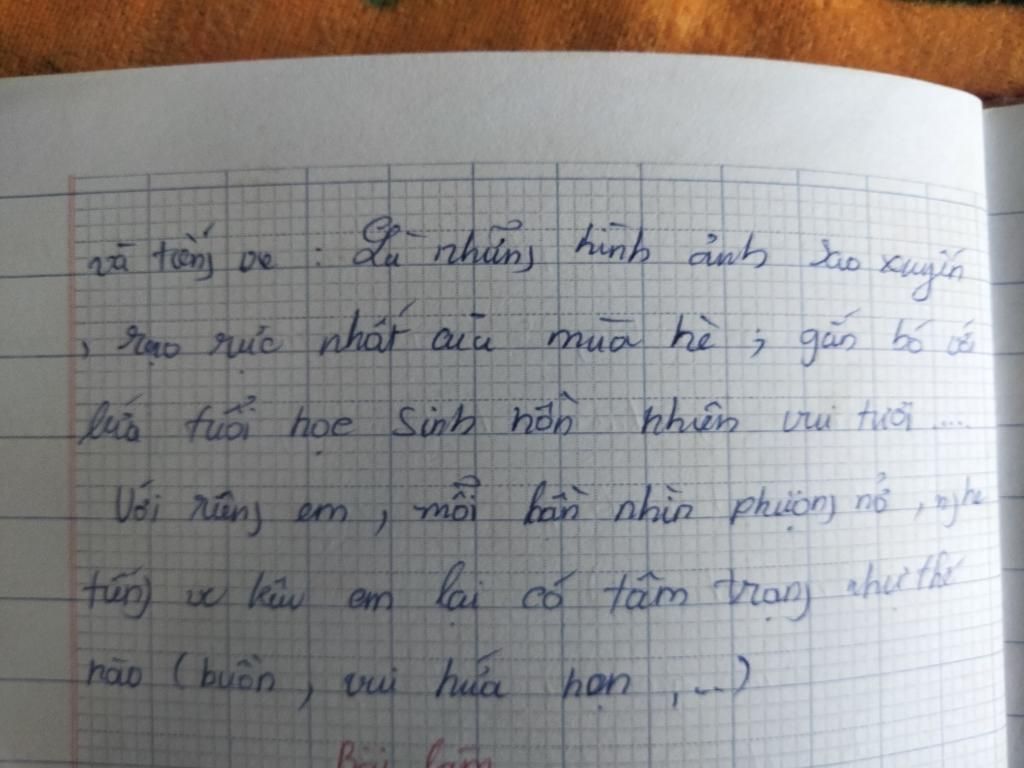 và tiếng ve : Là những hình ảnh xao xuyến
, rạo rực nhất của mùa hè ; gắn bó với
lứa tuổi học sinh hồn nhiên vui tươi ....
Với riêng em , mỗi lần nhìn phượng nở , nghe
tiếng ve kêu em lại có tâm trạng như thế
nào ( buồn , vui hứa hẹn , ... )
Bài làm